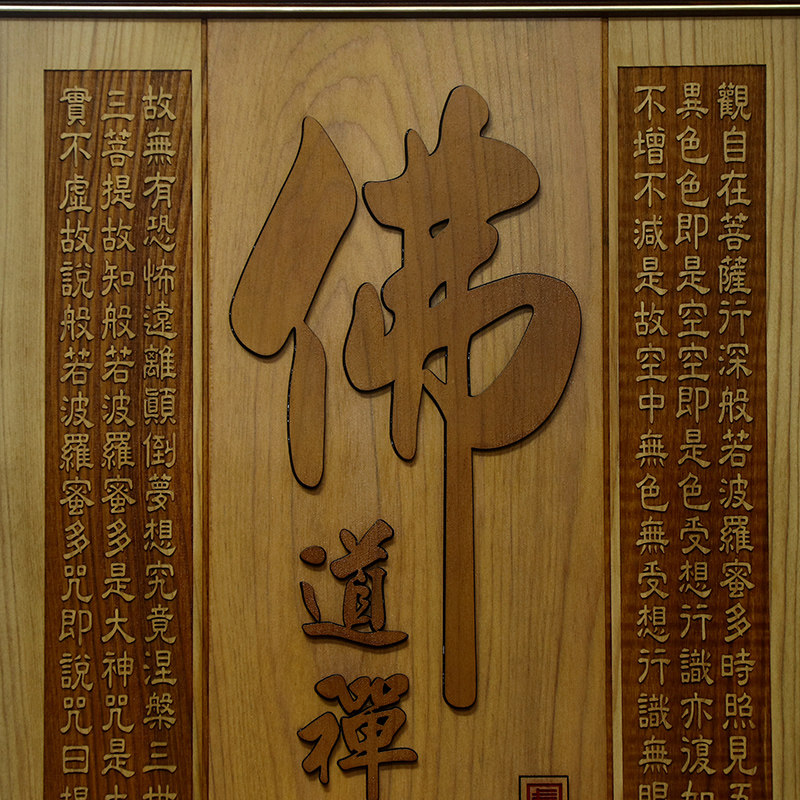 觀自在菩薩行深般若波羅蜜多時照見五
異色色即是空空即是色受想行識亦復如
不增不減是故空中無色無受想行識無眼
佛
道禪
故無有恐怖遠離顛倒夢想究竟涅槃三世
三菩提故知般若波羅蜜多是大神咒是大
實不虛故說般若波羅蜜多咒即說咒曰揭